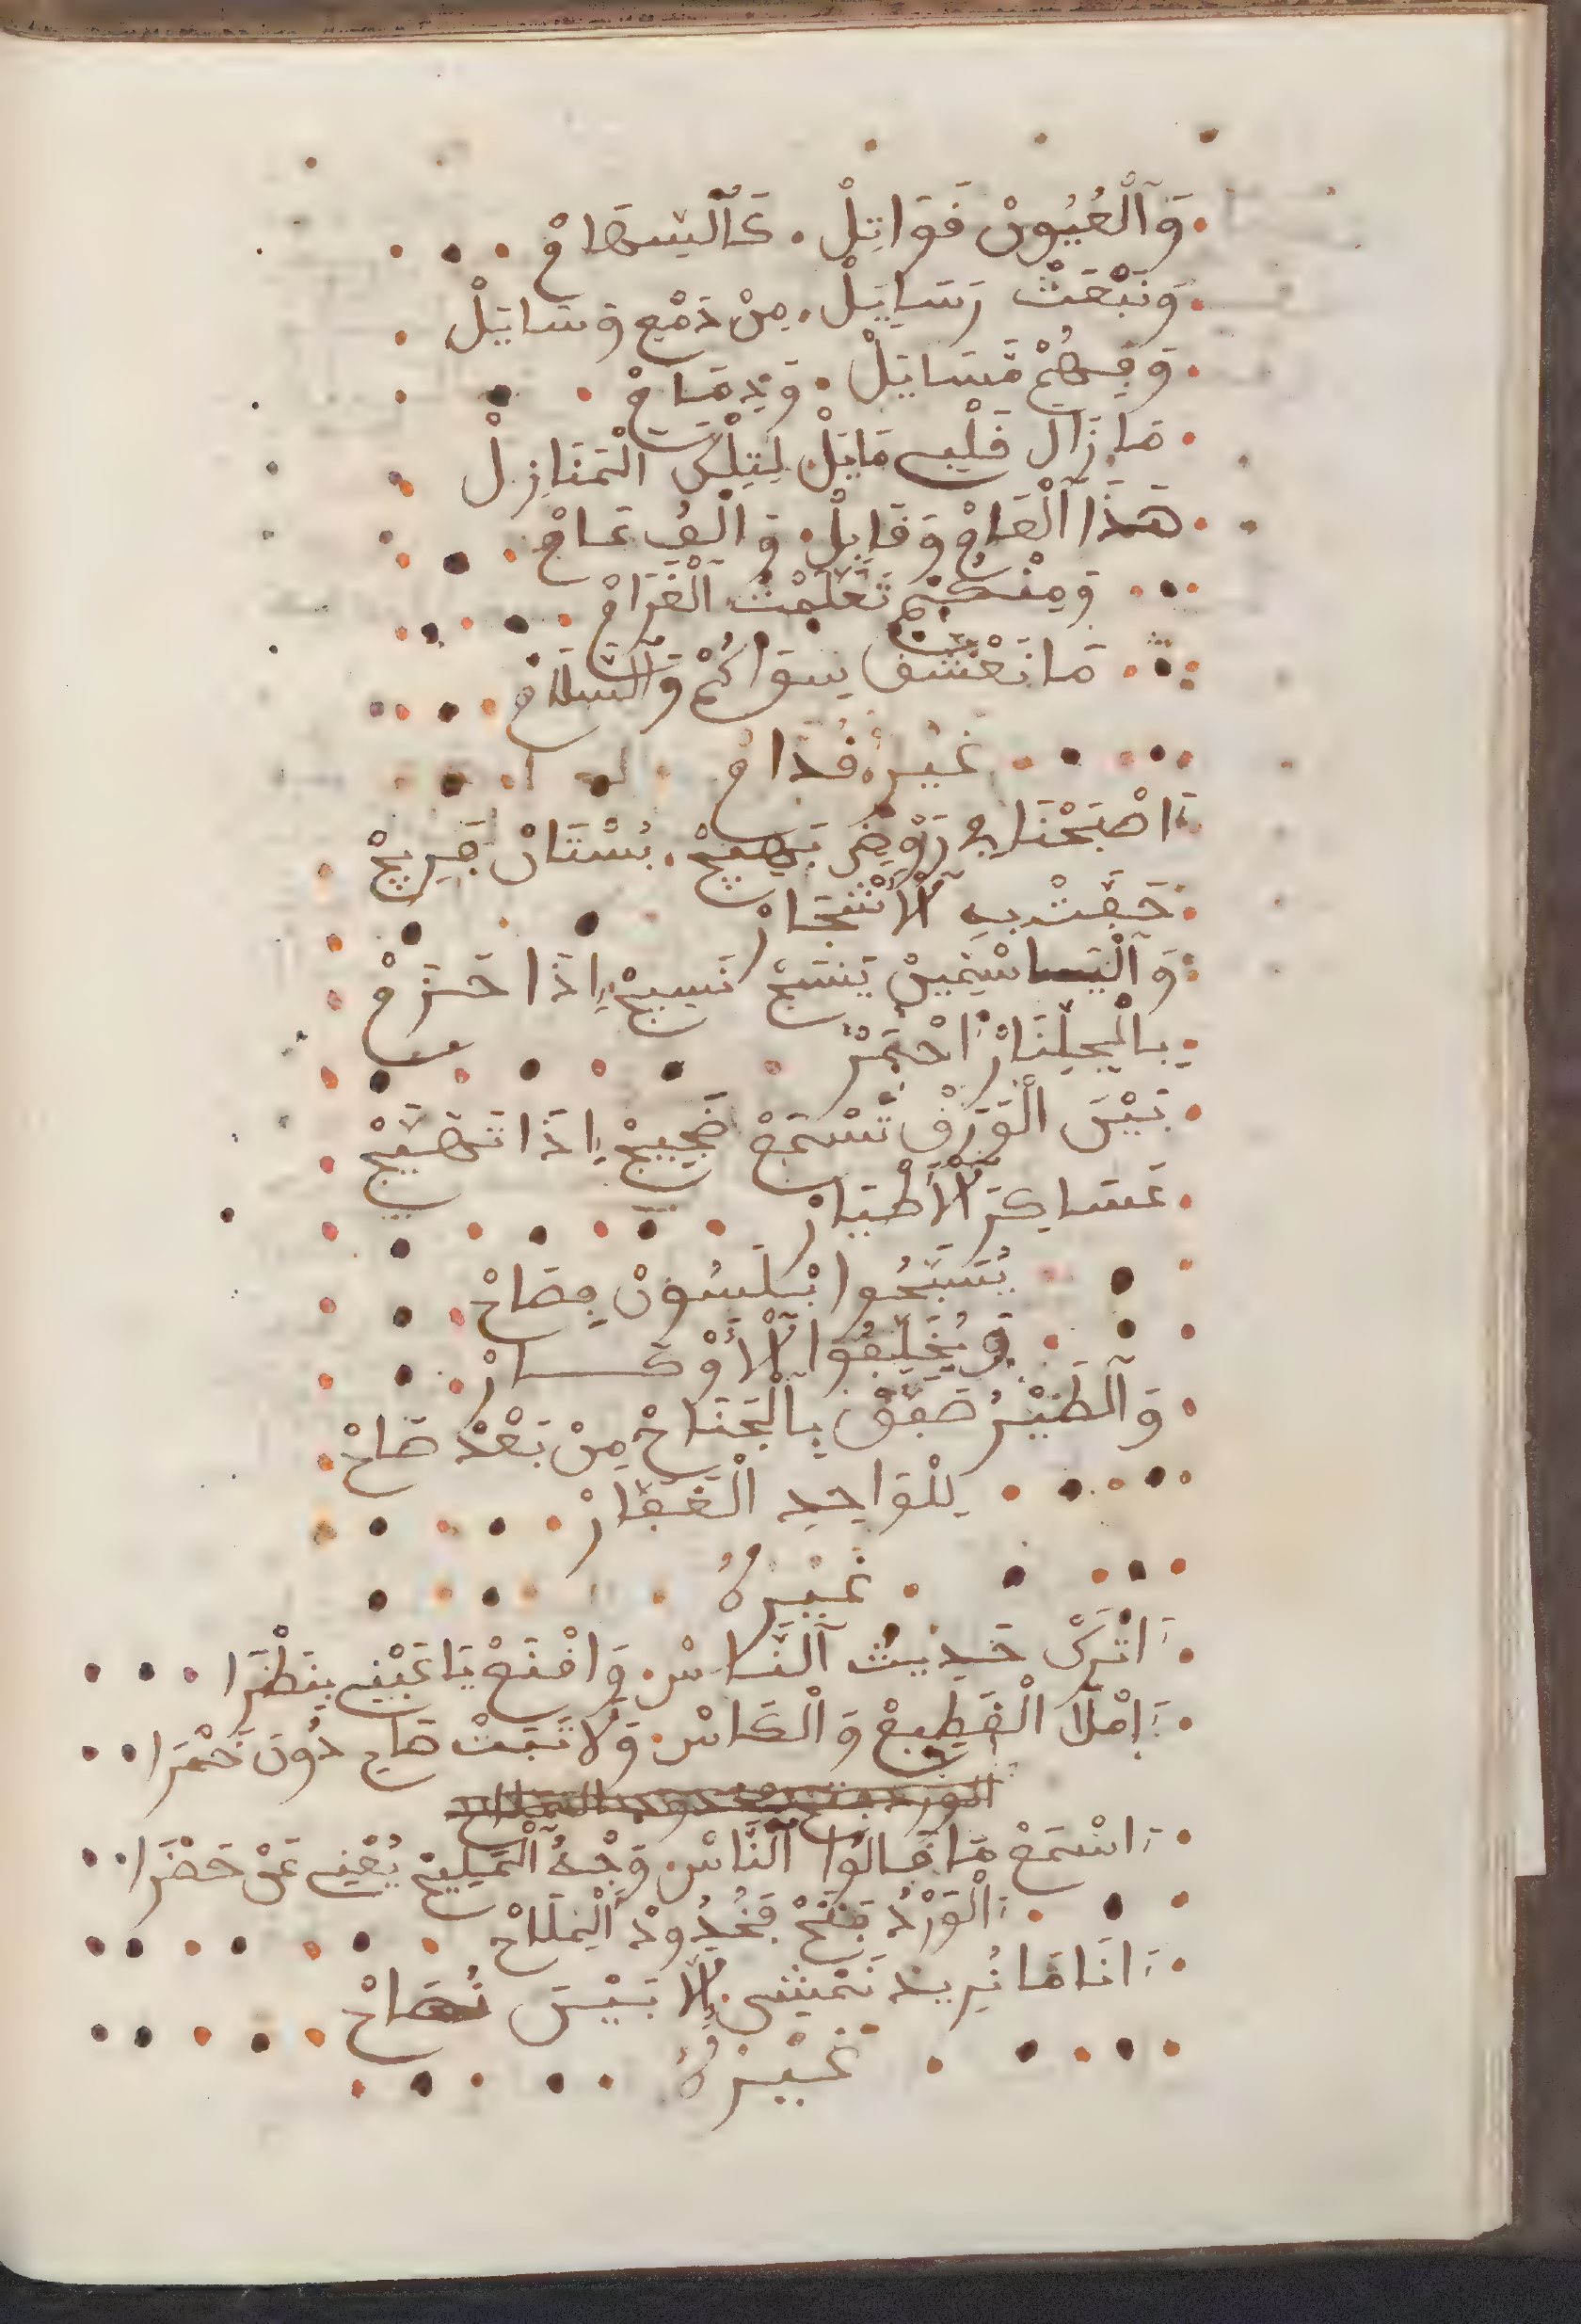 وَٱلْعُيُونْ قَوَاتِلْ . كَٱلسِّهَامْ
وَنَبْعَثْ رَسَايِلْ . مِنْ دَمْعِ وَسَايَلْ
وَفِيهُمْ مَسَايَلْ . وَذِمَامْ
مَا زَالَ قَلْبِي مَايَلْ لِتِلْكَ الْمَنَازِلْ
هَذَا ٱلْعَامْ وَقَابِلْ . وَالْفِ عَامْ
وَمِنْكُمْ تَعَلَّمْتُ ٱلْغَرَامْ
مَا نَعْشَقْ سِوَاكُمْ وَٱلسَّلَامْ
غَيْرُ قُدَّامْ
اَصْبَحْنَا فِي رَوْضِ بَهِيجْ . بُسْتَانْ بَهِيجْ
حَفَّتْ بِهِ ٱلْأَشْجَارْ
وَٱلْيَاسْمِينْ يَنْسَجْ نَسِيجْ . اِذَا حَزَمْ
بِالْجِلِّنَارْ اَحْمَرْ
بَيْنَ الْوَرَقْ تَسْمَعْ ضَجِيجْ . اِذَا تَهَيَّجْ
عَسَاكِرَ ٱلْأَطْيَارْ
يُسَبَّحُوا بْلَسُونْ فِصَاحْ
وَيُخَلِّفُوا ٱلْأَوْكَارْ
وَٱلطَّيْرُ صَفَّقْ بِٱلْجَنَاحْ مِنْ بَعْدْ صَاحْ
لِلْوَاحِدِ الْغَفَّارْ
غَيْرُهُ
اَتْرَكْ حَدِيثْ ٱلنَّاسْ . وَاقْنَعْ يَا عَيْنِي بِنَظْرَا
اِمْلَا الْقَطِيعْ وَالْكَاسْ . وَلَا تَبَتْ صَاحِ دُونَ خَمْرَا
اَسْمَعْ مَا قَالُوا ٱلنَّاسْ . وَجْهُ ٱلْمَلِيحْ يُغْنِي عَنْ حَضْرَا
اَلْوَرْدُ فَتَّحْ فَخُدُودْ ٱلْمِلَاحْ
اَنَا مَا نُرِيدْ نَمْشِي . اِلَّا بَيْنَ
غَيْرُهُ